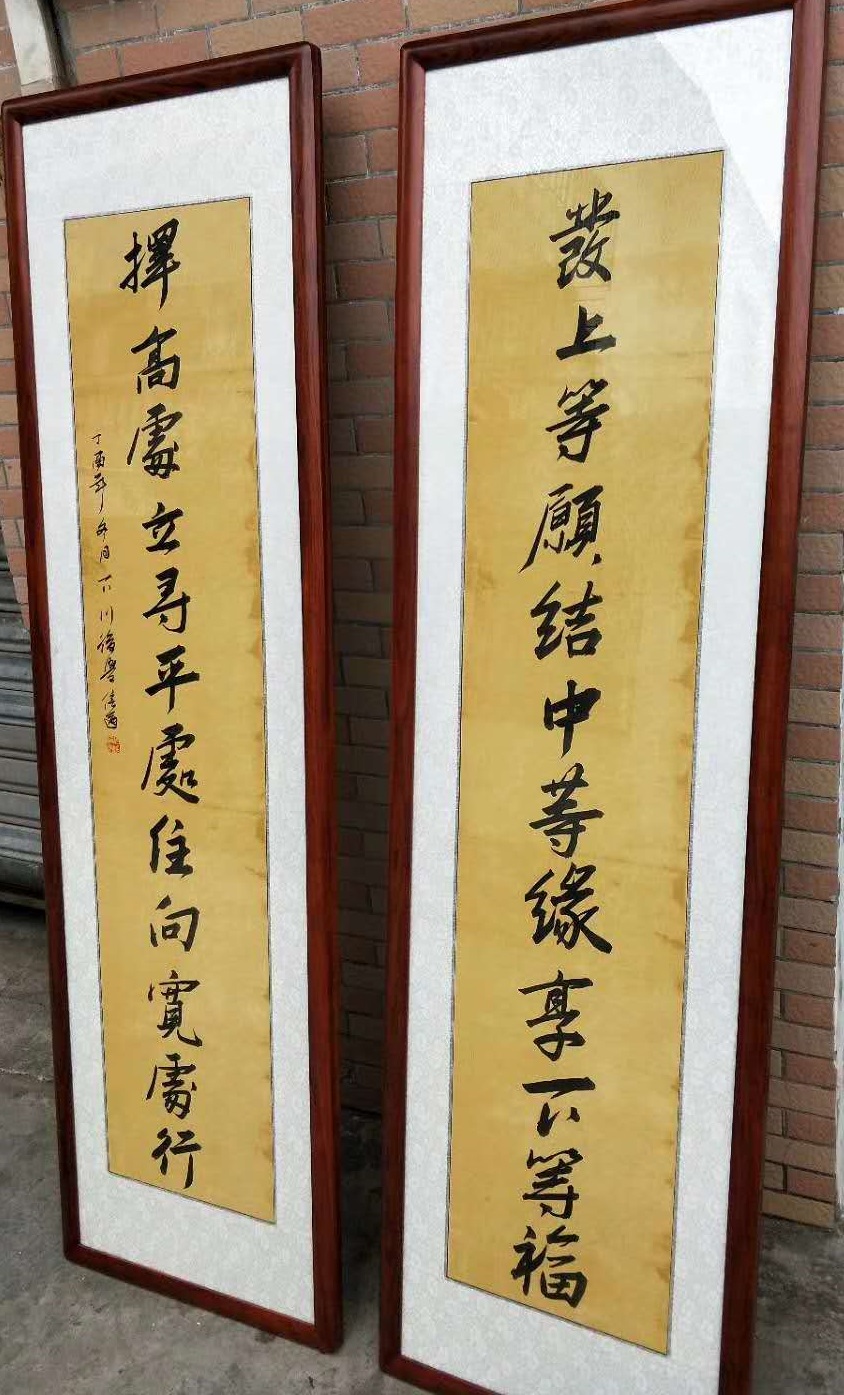 發上等願結中等緣享下等福
擇高處立尋平處住向寬處行
丁酉年冬月下川